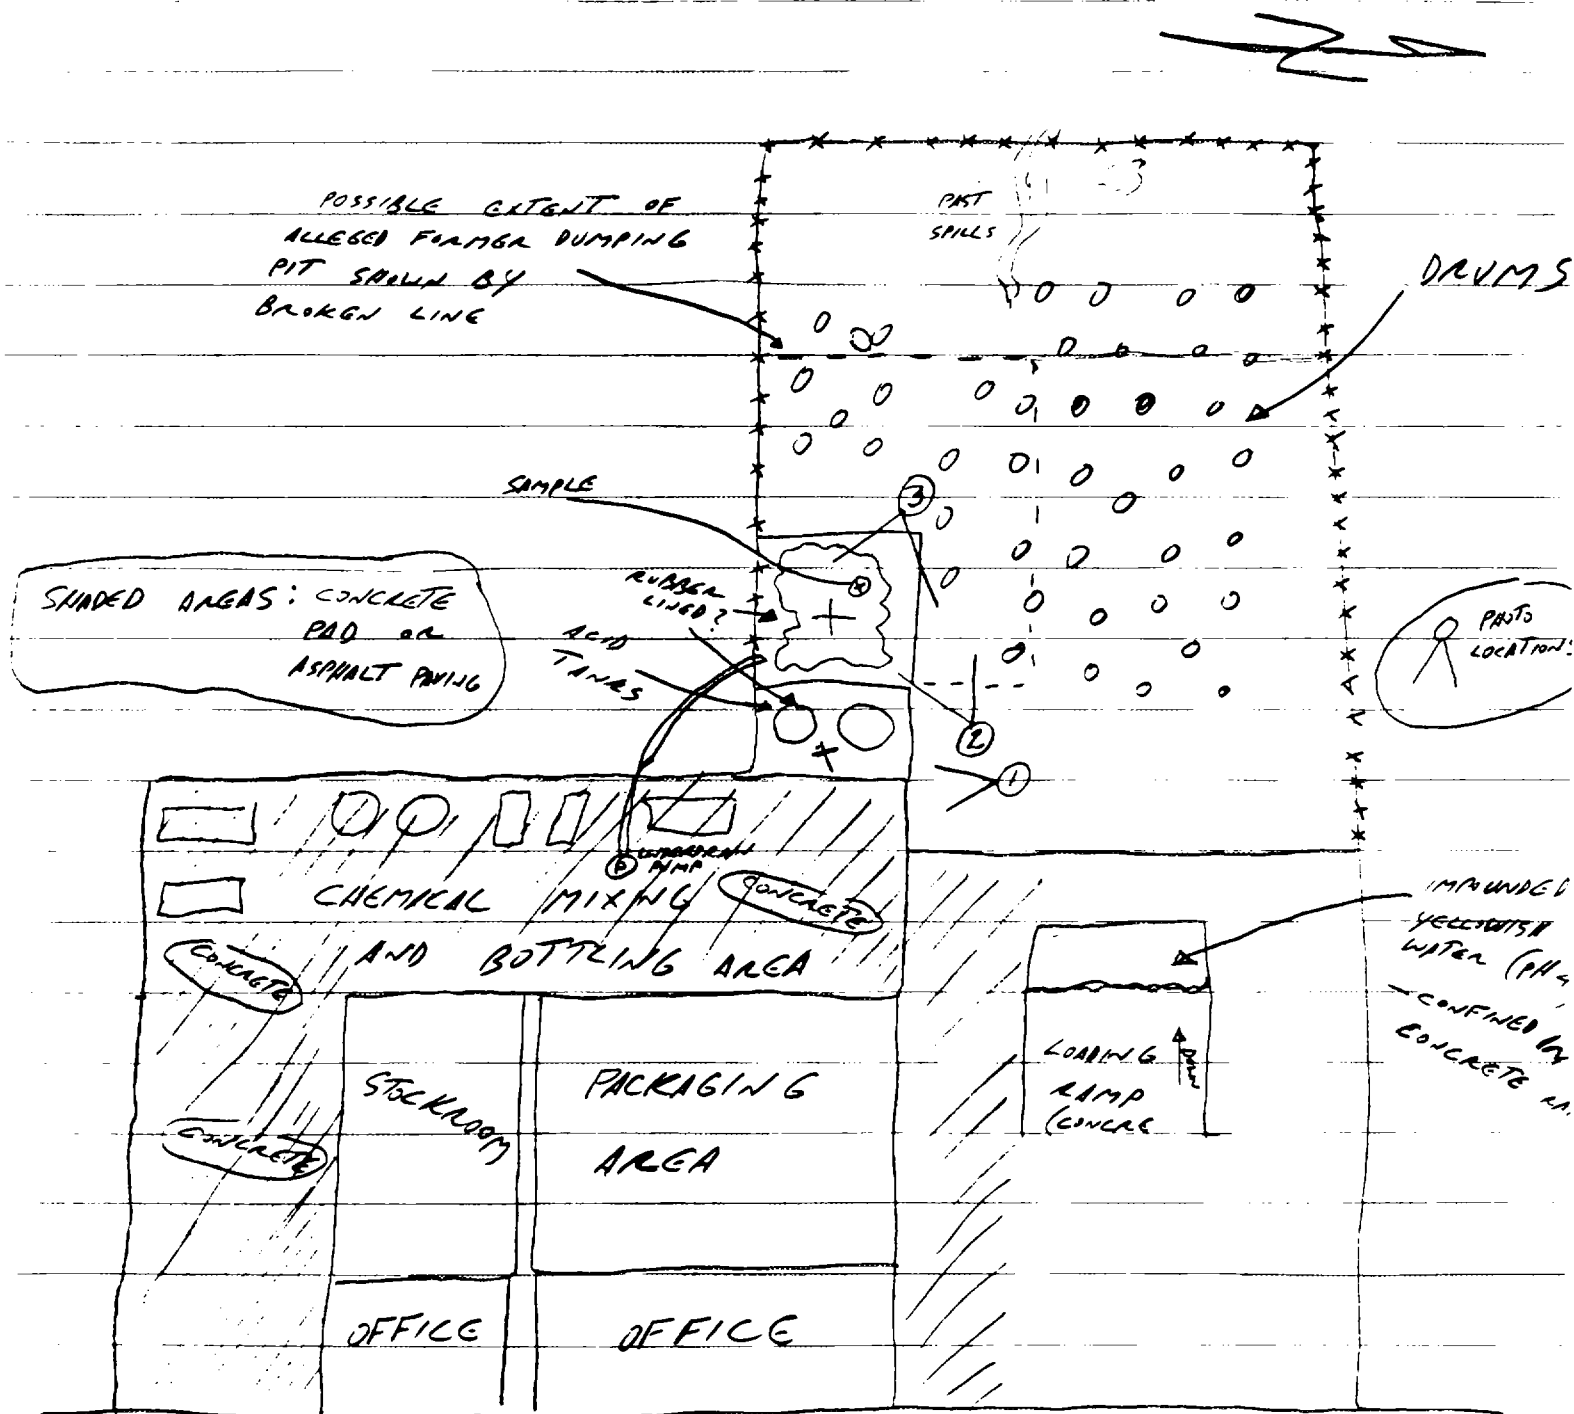 POSSIBLE EXTENT OF
ALLEGED FORMER DUMPING
PIT SHOWN BY
BROKEN LINE
PAST
SPILLS
DRUMS
SAMPLE
3
SHADED AREAS: CONCRETE
PAD OR
ASPHALT PAVING
RUBBER
LINED?
ACID
TANKS
PHOTO
LOCATIONS
2
1
P
PUMP
CHEMICAL MIXING
AND BOTTLING AREA
CONCRETE
CONCRETE
CONCRETE
IMPOUNDED
YELLOWISH
WATER (PH
- CONFINED
CONCRETE
LOADING
RAMP
(CONCRE
DOWN
STOCKROOM
PACKAGING
AREA
OFFICE
OFFICE